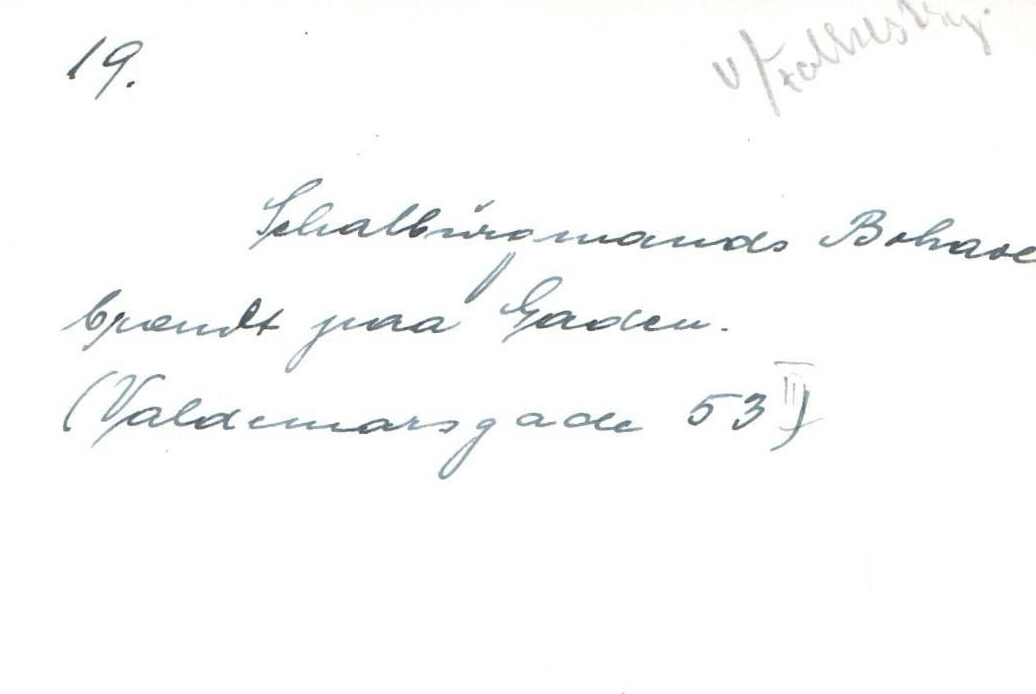 19.
v/ Falkes Vej.
Schalburgmands Bohave
brændt paa Gaden.
(Valdemarsgade 53 II)